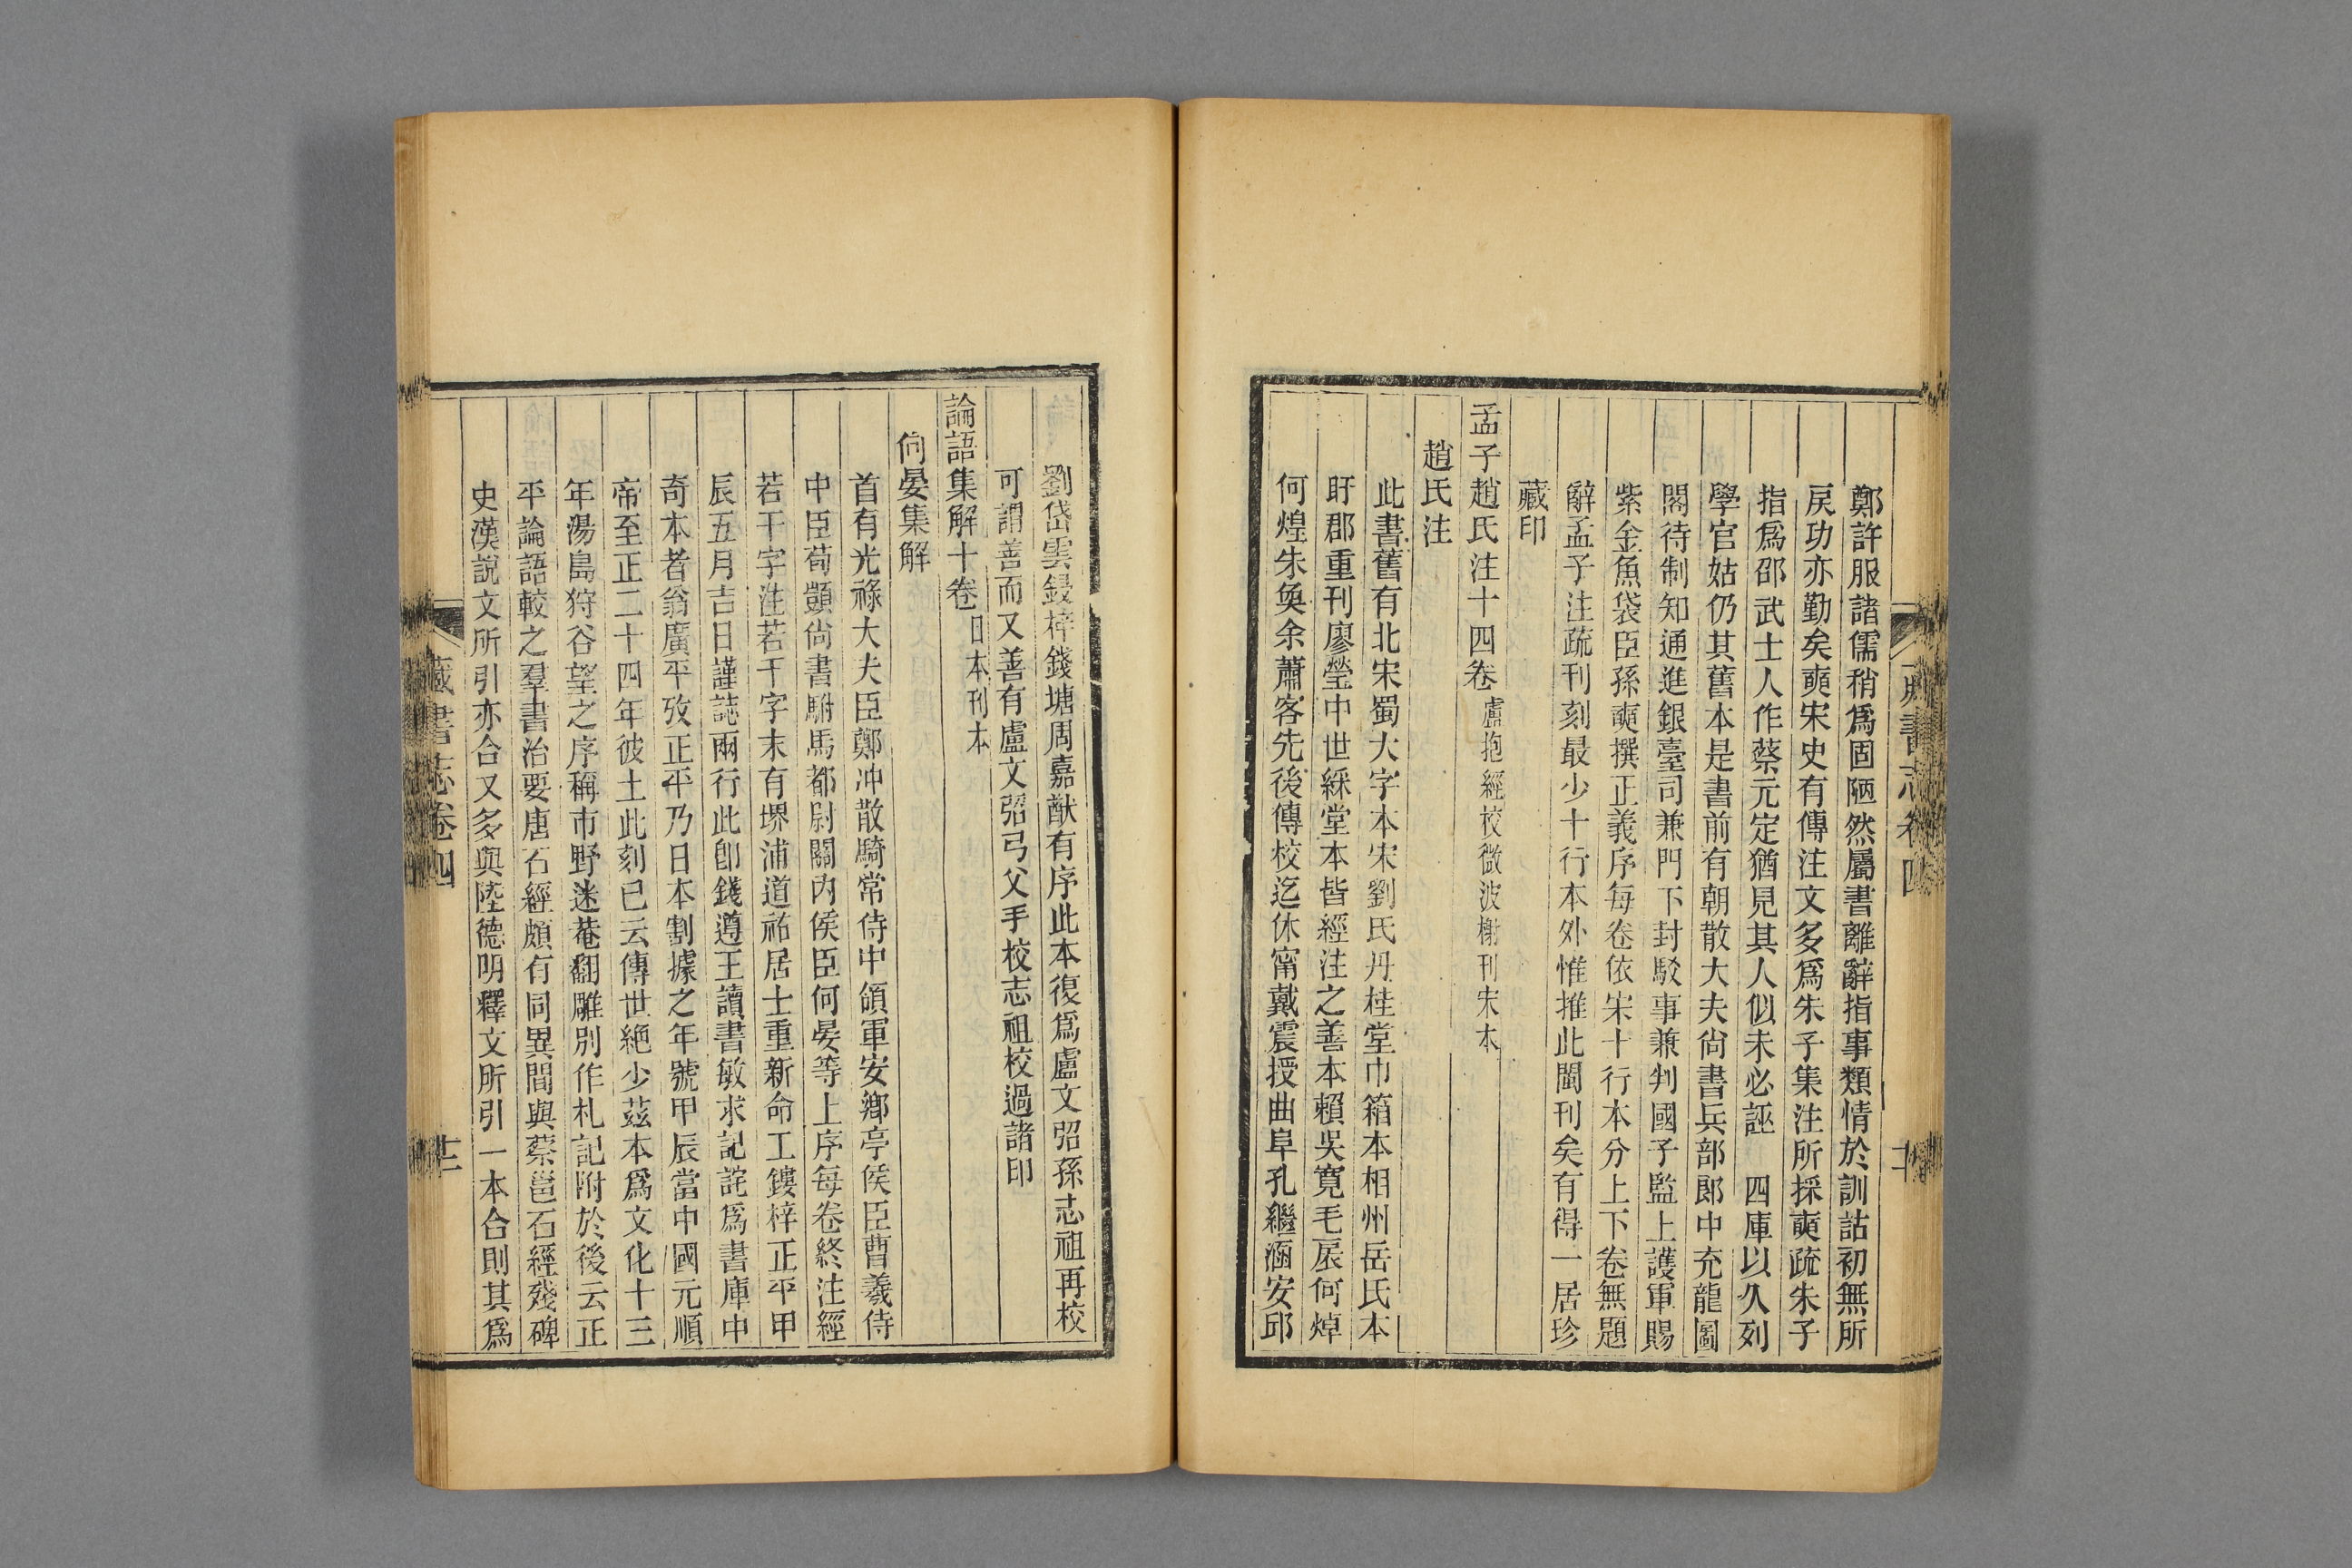 鄭許服諸儒稍爲固陋然屬書離辭指事類情於訓詁初無所
戾功亦勤矣奭宋史有傳注文多爲朱子集注所採奭疏朱子
指爲邵武士人作蔡元定猶見其人似未必誣　四庫以久列
學官姑仍其舊本是書前有朝散大夫尙書兵部郎中充龍圖
閣待制知通進銀臺司兼門下封駁事兼判國子監上護軍賜
紫金魚袋臣孫奭撰正義序每卷依宋十行本分上下卷無題
辭孟子注疏刊刻最少十行本外惟推此閩刊矣有得一居珍
藏印
孟子趙氏注十四卷盧抱經校微波榭刊宋本
趙氏注
此書舊有北宋蜀大字本宋劉氏丹桂堂巾箱本相州岳氏本
盱郡重刊廖瑩中世綵堂本皆經注之善本賴吳寬毛扆何焯
何煌朱奐余蕭客先後傳校迄休甯戴震授曲阜孔繼涵安邱
藏書志卷四
劉岱雲鋟梓錢塘周嘉猷有序此本復爲盧文弨孫志祖再校
可謂善而又善有盧文弨弓父手校志祖校過諸印
論語集解十卷日本刊本
何晏集解
首有光祿大夫臣鄭冲散騎常侍中領軍安鄉亭侯臣曹羲侍
中臣荀顗尙書駙馬都尉關內侯臣何晏等上序每卷終注經
若干字注若干字末有堺浦道祐居士重新命工鏤梓正平甲
辰五月吉日謹誌兩行此卽錢遵王讀書敏求記詫爲書庫中
奇本者翁廣平攷正平乃日本割據之年號甲辰當中國元順
帝至正二十四年彼土此刻已云傳世絶少茲本爲文化十三
年湯島狩谷望之序稱市野迷菴翻雕別作札記附於後云正
平論語較之羣書治要唐石經頗有同異間與蔡邕石經殘碑
史漢說文所引亦合又多與陸德明釋文所引一本合則其爲
藏書志卷四